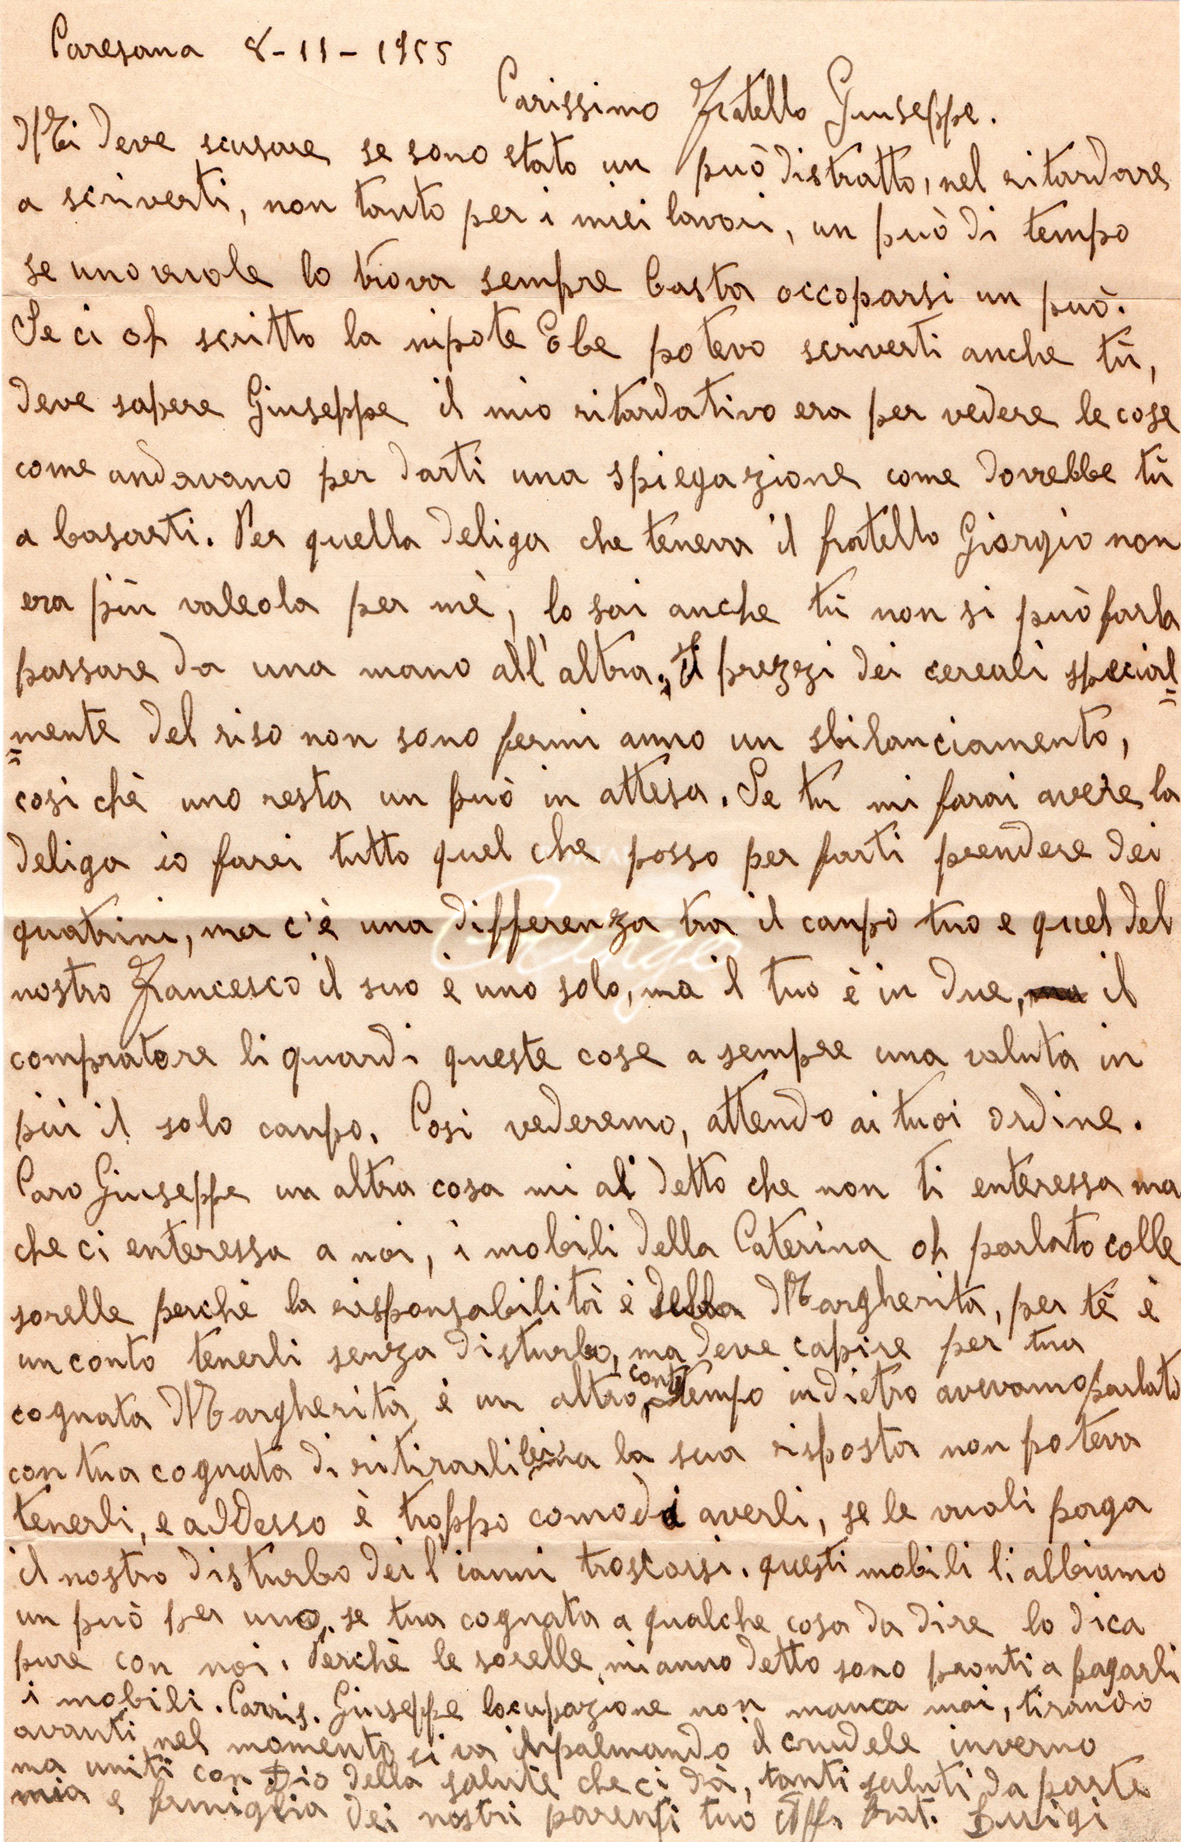 Paresana 8-11-1955
Carissimo Fratello Giuseppe.
Mi deve scusare se sono stato un può distratto, nel ritardare
a scriverti, non tanto per i miei lavori, un può di tempo
se uno vuole lo trova sempre basta occoparsi un può.
Se ci oh scritto la nipote Ebe potevo scriverti anche tù,
deve sapere Giuseppe il mio ritardativo era per vedere le cose
come andavano per darti una spiegazione come dovrebbe tù
a basarti. Per quella deliga che teneva il fratello Giorgio non
era più valeola per mè, lo sai anche tù non si può farla
passare da una mano all'altra. Il prezzi dei cereali special=
=mente del riso non sono fermi anno un sbilanciamento,
cosi chè uno resta un può in attesa. Se tu mi farai avere la
deliga io farei tutto quel che posso per farti prendere dei
quatrini, ma c'è una differenza tra il canpo tuo e quel del
nostro Francesco il suo è uno solo, ma il tuo è in due, il
compratore li quardi queste cose a sempre una valuta in
più il solo canpo. Cosi vederemo, attendo ai tuoi ordine.
Caro Giuseppe un altra cosa mi ai detto che non ti enteressa ma
che ci enteressa a noi, i mobili della Caterina oh parlato colle
sorelle perchè la risponsabilità è della Margherita, per tè è
un conto tenerli senza disturbo, ma deve capire per tua
cognata Margherita è un altro conto tempo indietro avevamo parlato
con tua cognata di ritirarli la sua risposta non poteva
tenerli, e addesso è troppo comodi averli, se le vuoli paga
il nostro disturbo dei l'ianni troscorsi. questi mobili li abbiamo
un può per uno, se tua cognata a qualche cosa da dire lo dica
pure con noi. Perchè le sorelle, mi anno detto sono pronti a pagarli
i mobili. Carris. Giuseppe locupazione non manca mai, tirando
avanti nel momento si va inpalmando il crudele inverno
ma uniti con Dio della salute che ci dà, tanti saluti da parte
mia e famiglia dei nostri parenti tuo Aff. Frat. Luigi